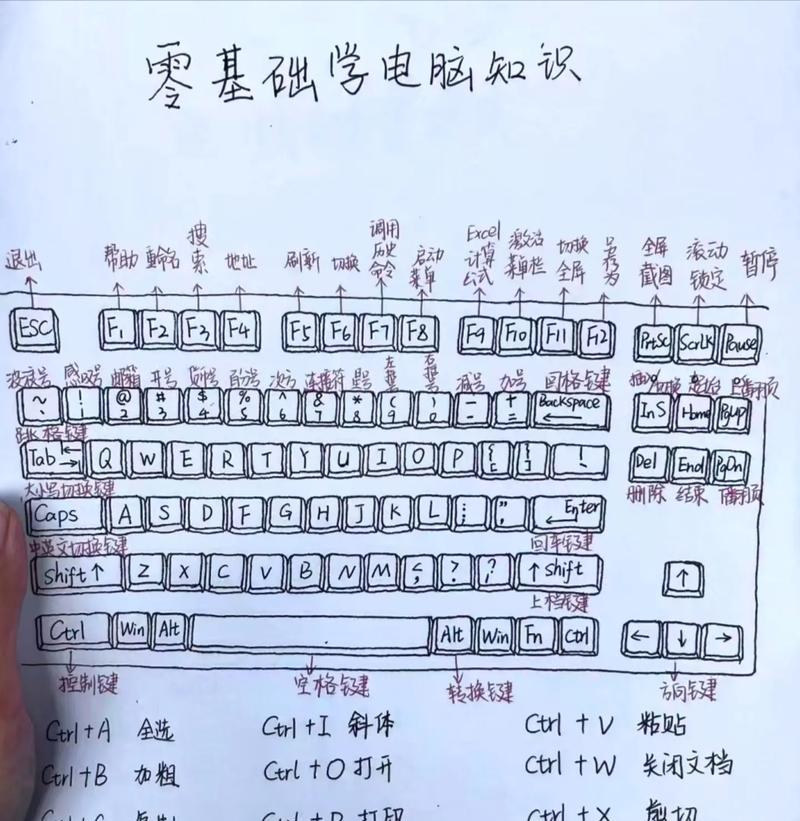 零基础学电脑知识
退出 帮助 重命名 搜索 地址 刷新 切换 调用历史命令 启动菜单 Excel计算公式 激活菜单栏 切换全屏 另存为 全屏截图 滚动锁定 暂停
ESC F1 F2 F3 F4 F5 F6 F7 F8 F9 F10 F11 F12 PrtSc ScrLK Pause
波浪号 感叹号 邮箱 井号 货币号 百分号 次方 连接符 星号 左括号 右括号 减号 加号 回格键 插入 切换 起始 上翻页
~ ` ! 1 @ 2 # 3 $ 4 % 5 ^ 6 & 7 * 8 ( 9 ) 0 - - + = Backspace InS Home PgUp
跳格键
Tab Q W E R T Y U I O P { [ } ] ! Del End PgDn
大小写切换键 删除 结束 下翻页
Caps A S D F G H J K L Enter
中英文切换键 回车键
Shift↑ Z X C V B N M ↑Shift ↑
上档键
Ctrl Win Alt Alt Win Fn Ctrl ← ↓ →
控制键 空格键 转换键 方向键
Ctrl+A 全选 Ctrl+I 斜体 Ctrl+V 粘贴
Ctrl+B 加粗 Ctrl+O 打开 Ctrl+W 关闭文档
Ctrl+C 复制 Ctrl+P 打印 Ctrl+X 剪切